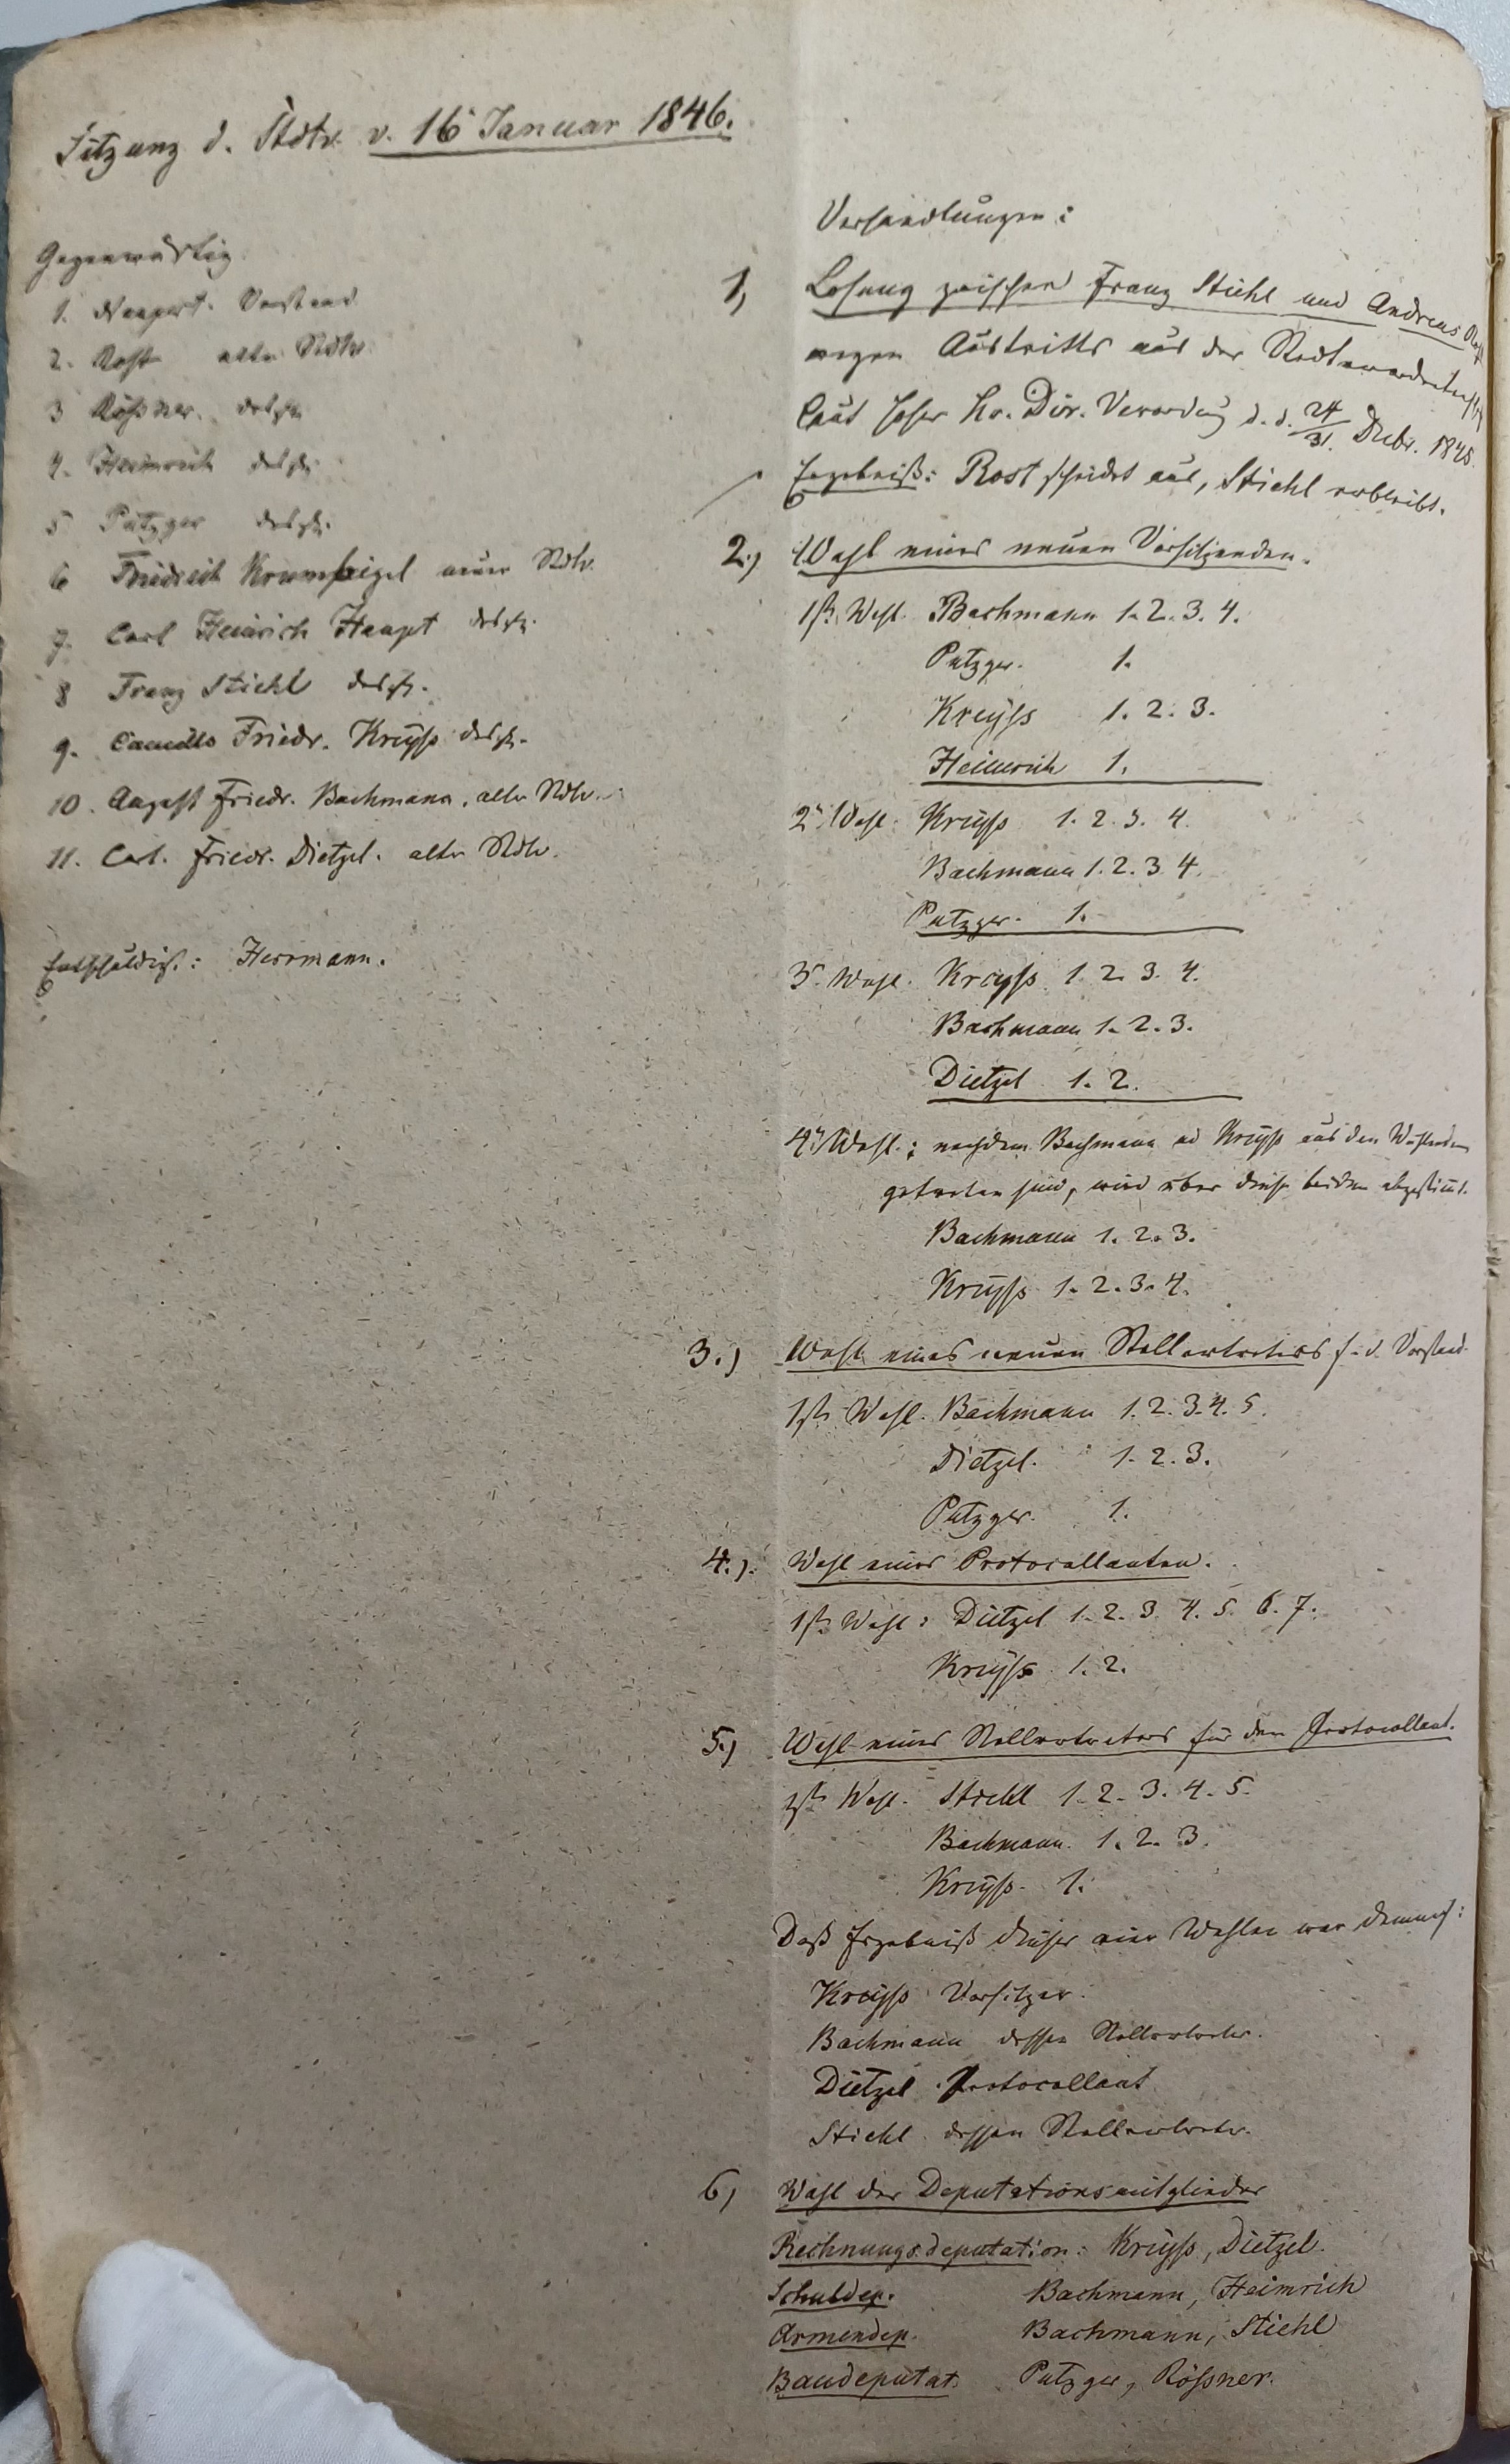 Sitzung d. Stdtv. v. 16 Januar 1846.
Gegenwärtig.
1. Neupert. Vorstand
2. Rost alter Stdtv.
3 Rößner. desgl.
4. Heimrich desgl.
5 Putzger desgl.
6 Friedrich Krumbeigel neuer Stdtv.
7. Carl Heinrich Haupt desgl.
8 Franz Stichl desgl.
9. Camillo Friedr. Kreyss desgl.
10. August Friedr. Bachmann, alter Stdtv.
11. Carl. Friedr. Dietzel. alter Stdtv.
Entschuldigt: Herrmann.
Verhandlungen:
1, Losung zwischen Franz Stichl und Andreas Rost
wegen Austritts aus der Stadtverordnetenschaft
laut hoher Kr. Dir. Verordng d. d. 24/31. Decbr. 1845.
Ergebniß: Rost scheidet aus, Stichl verbleibt.
2.) Wahl eines neuen Vorsitzenden.
1ste Wahl. Bachmann 1. 2. 3. 4.
Putzger. 1.
Kreyss 1. 2. 3.
Heimrich 1.
2te Wahl. Kreyss 1. 2. 3. 4.
Bachmann 1. 2. 3. 4.
Putzger. 1.
3te Wahl. Kreyss 1. 2. 3. 4.
Bachmann 1. 2. 3.
Dietzel 1. 2.
4te Wahl.: nachdem Bachmann und Kreyss aus den Wählenden
getreten sind, wird über diese beiden abgestimt.
Bachmann 1. 2. 3.
Kreyss 1. 2. 3. 4.
3.) Wahl eines neuen Stellvertreters f. d. Vorstand.
1ste Wahl. Bachmann 1. 2. 3. 4. 5.
Dietzel. 1. 2. 3.
Putzger. 1.
4.). Wahl eines Protocollanten.
1ste Wahl: Dietzel 1. 2. 3. 4. 5. 6. 7.
Kreyss 1. 2.
5.) Wahl eines Stellvertreters für den Protocollant.
1ste Wahl. Stichl 1. 2. 3. 4. 5.
Bachmann. 1. 2. 3.
Kreyss. 1.
Daß Ergebniß dieser vier Wahlen war demnach:
Kreyss Vorsitzer.
Bachmann dessen Stellvertreter.
Dietzel Protocollant
Stichl dessen Stellvertreter.
6) Wahl der Deputationsmitglieder
Rechnungsdeputation: Kreyss, Dietzel.
Schuldep. Bachmann, Heimrich
Armendep. Bachmann, Stichl
Baudeputat. Putzger, Rößner.